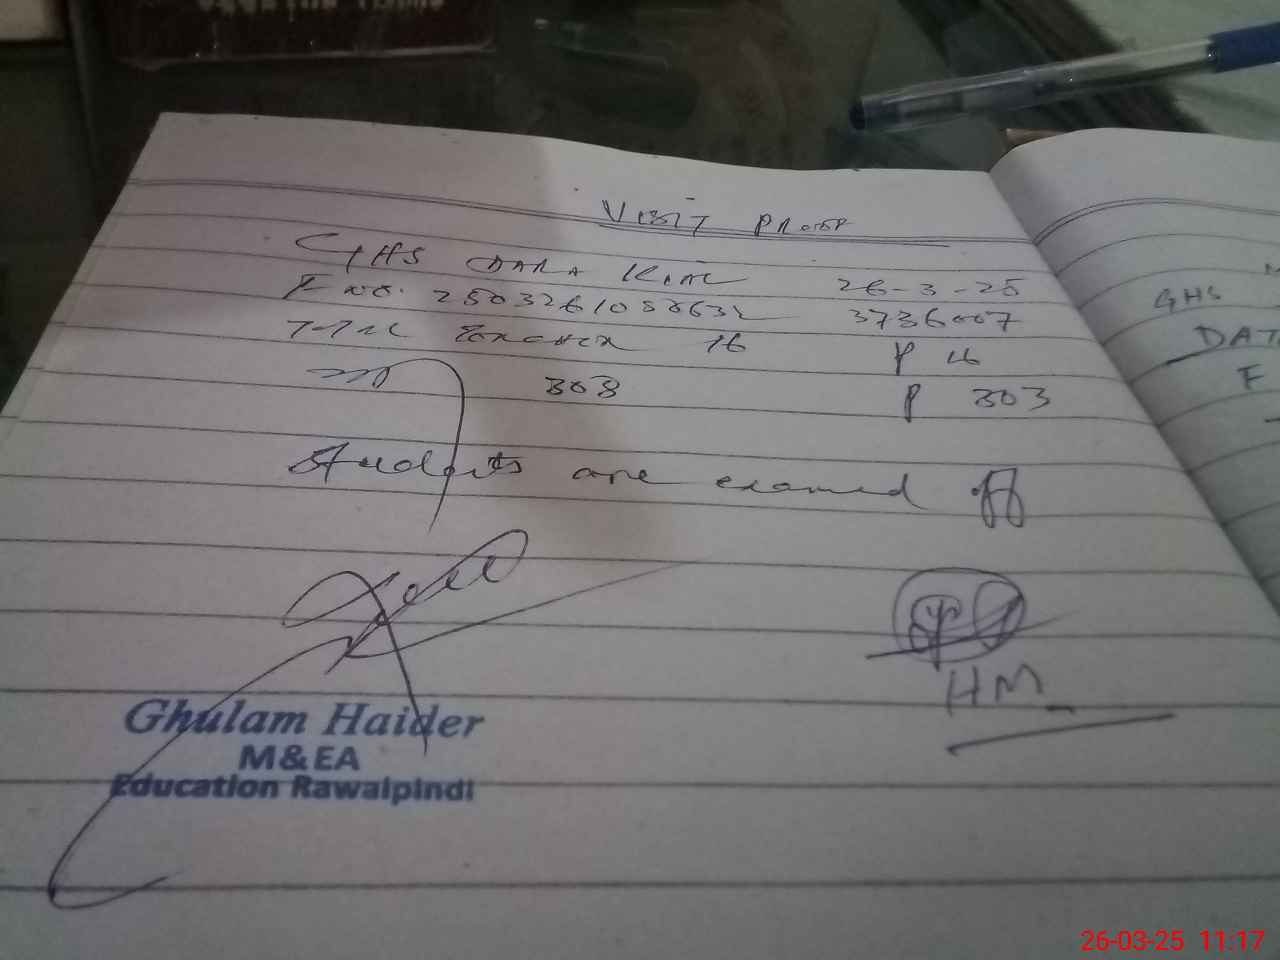 VISIT PROOF
GHS DARA KIAL 26-3-25
F no. 2503261088632 3736007
Total Teacher 16 P 16
308 P 303
Students are examed off
HM
Ghulam Haider
M&EA
Education Rawalpindi
GHS
DAT
F
26-03-25 11:17